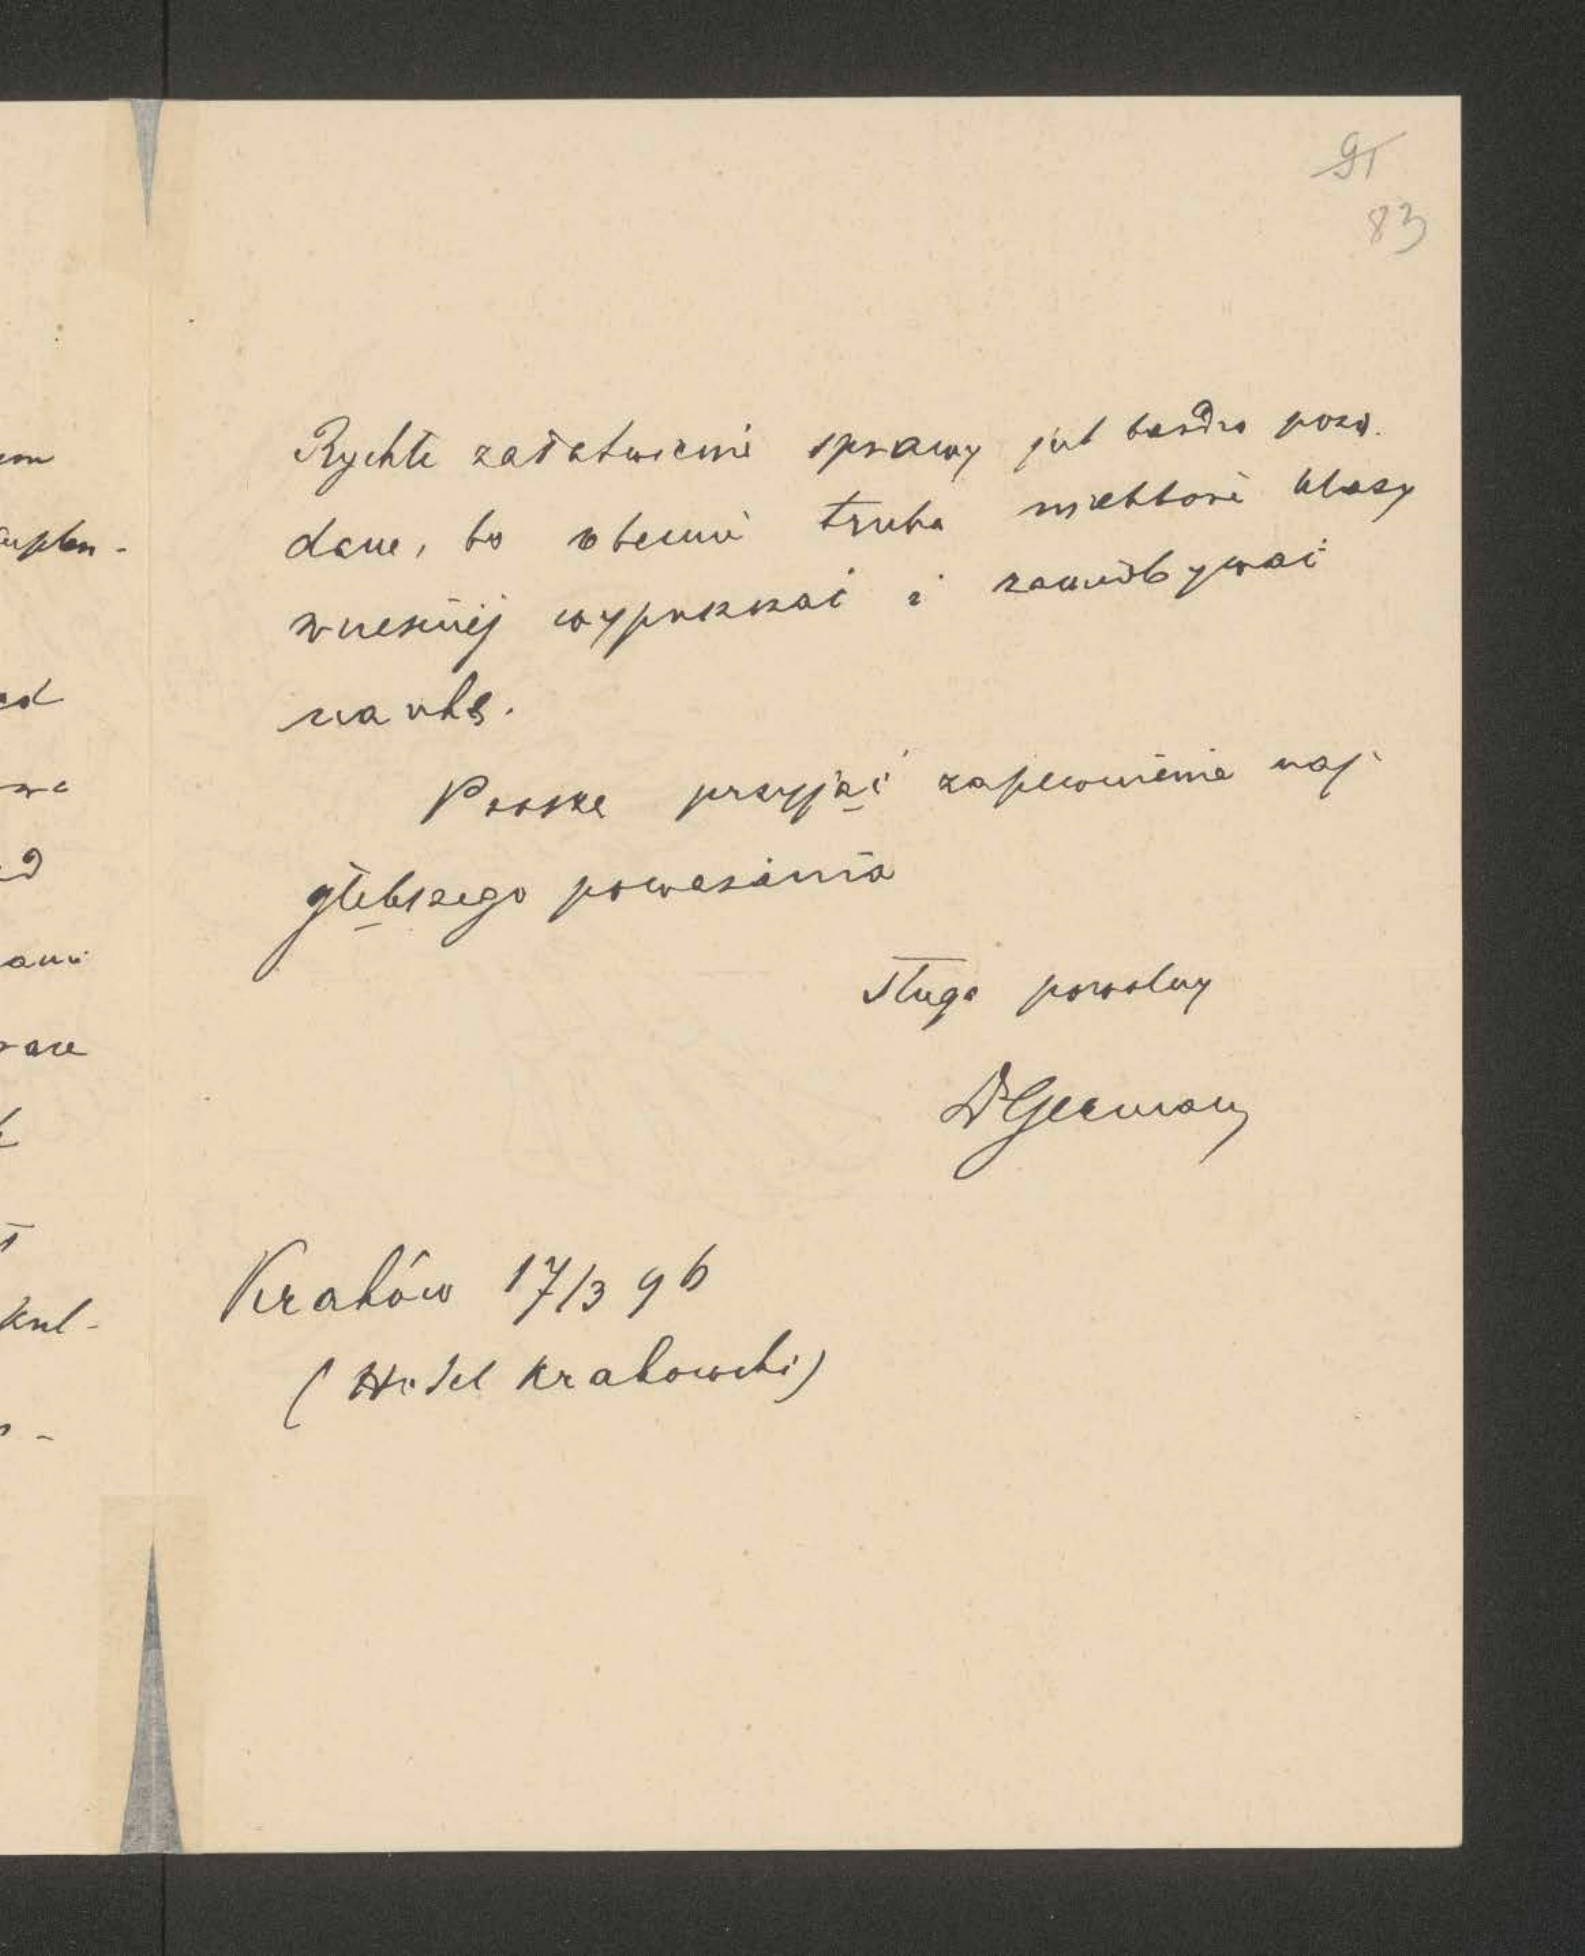 91
83
Rychłe załatwienie sprawy jest bardzo pożą-
dane, bo obecnie trzeba niektóre klasy
wcześniej wypuszczać i zaniedbywać
naukę.
Proszę przyjąć zapewnienie naj-
głębszego poważania
Sługa powolny
Dr German
Kraków 17/3 96
(Hotel Krakowski)